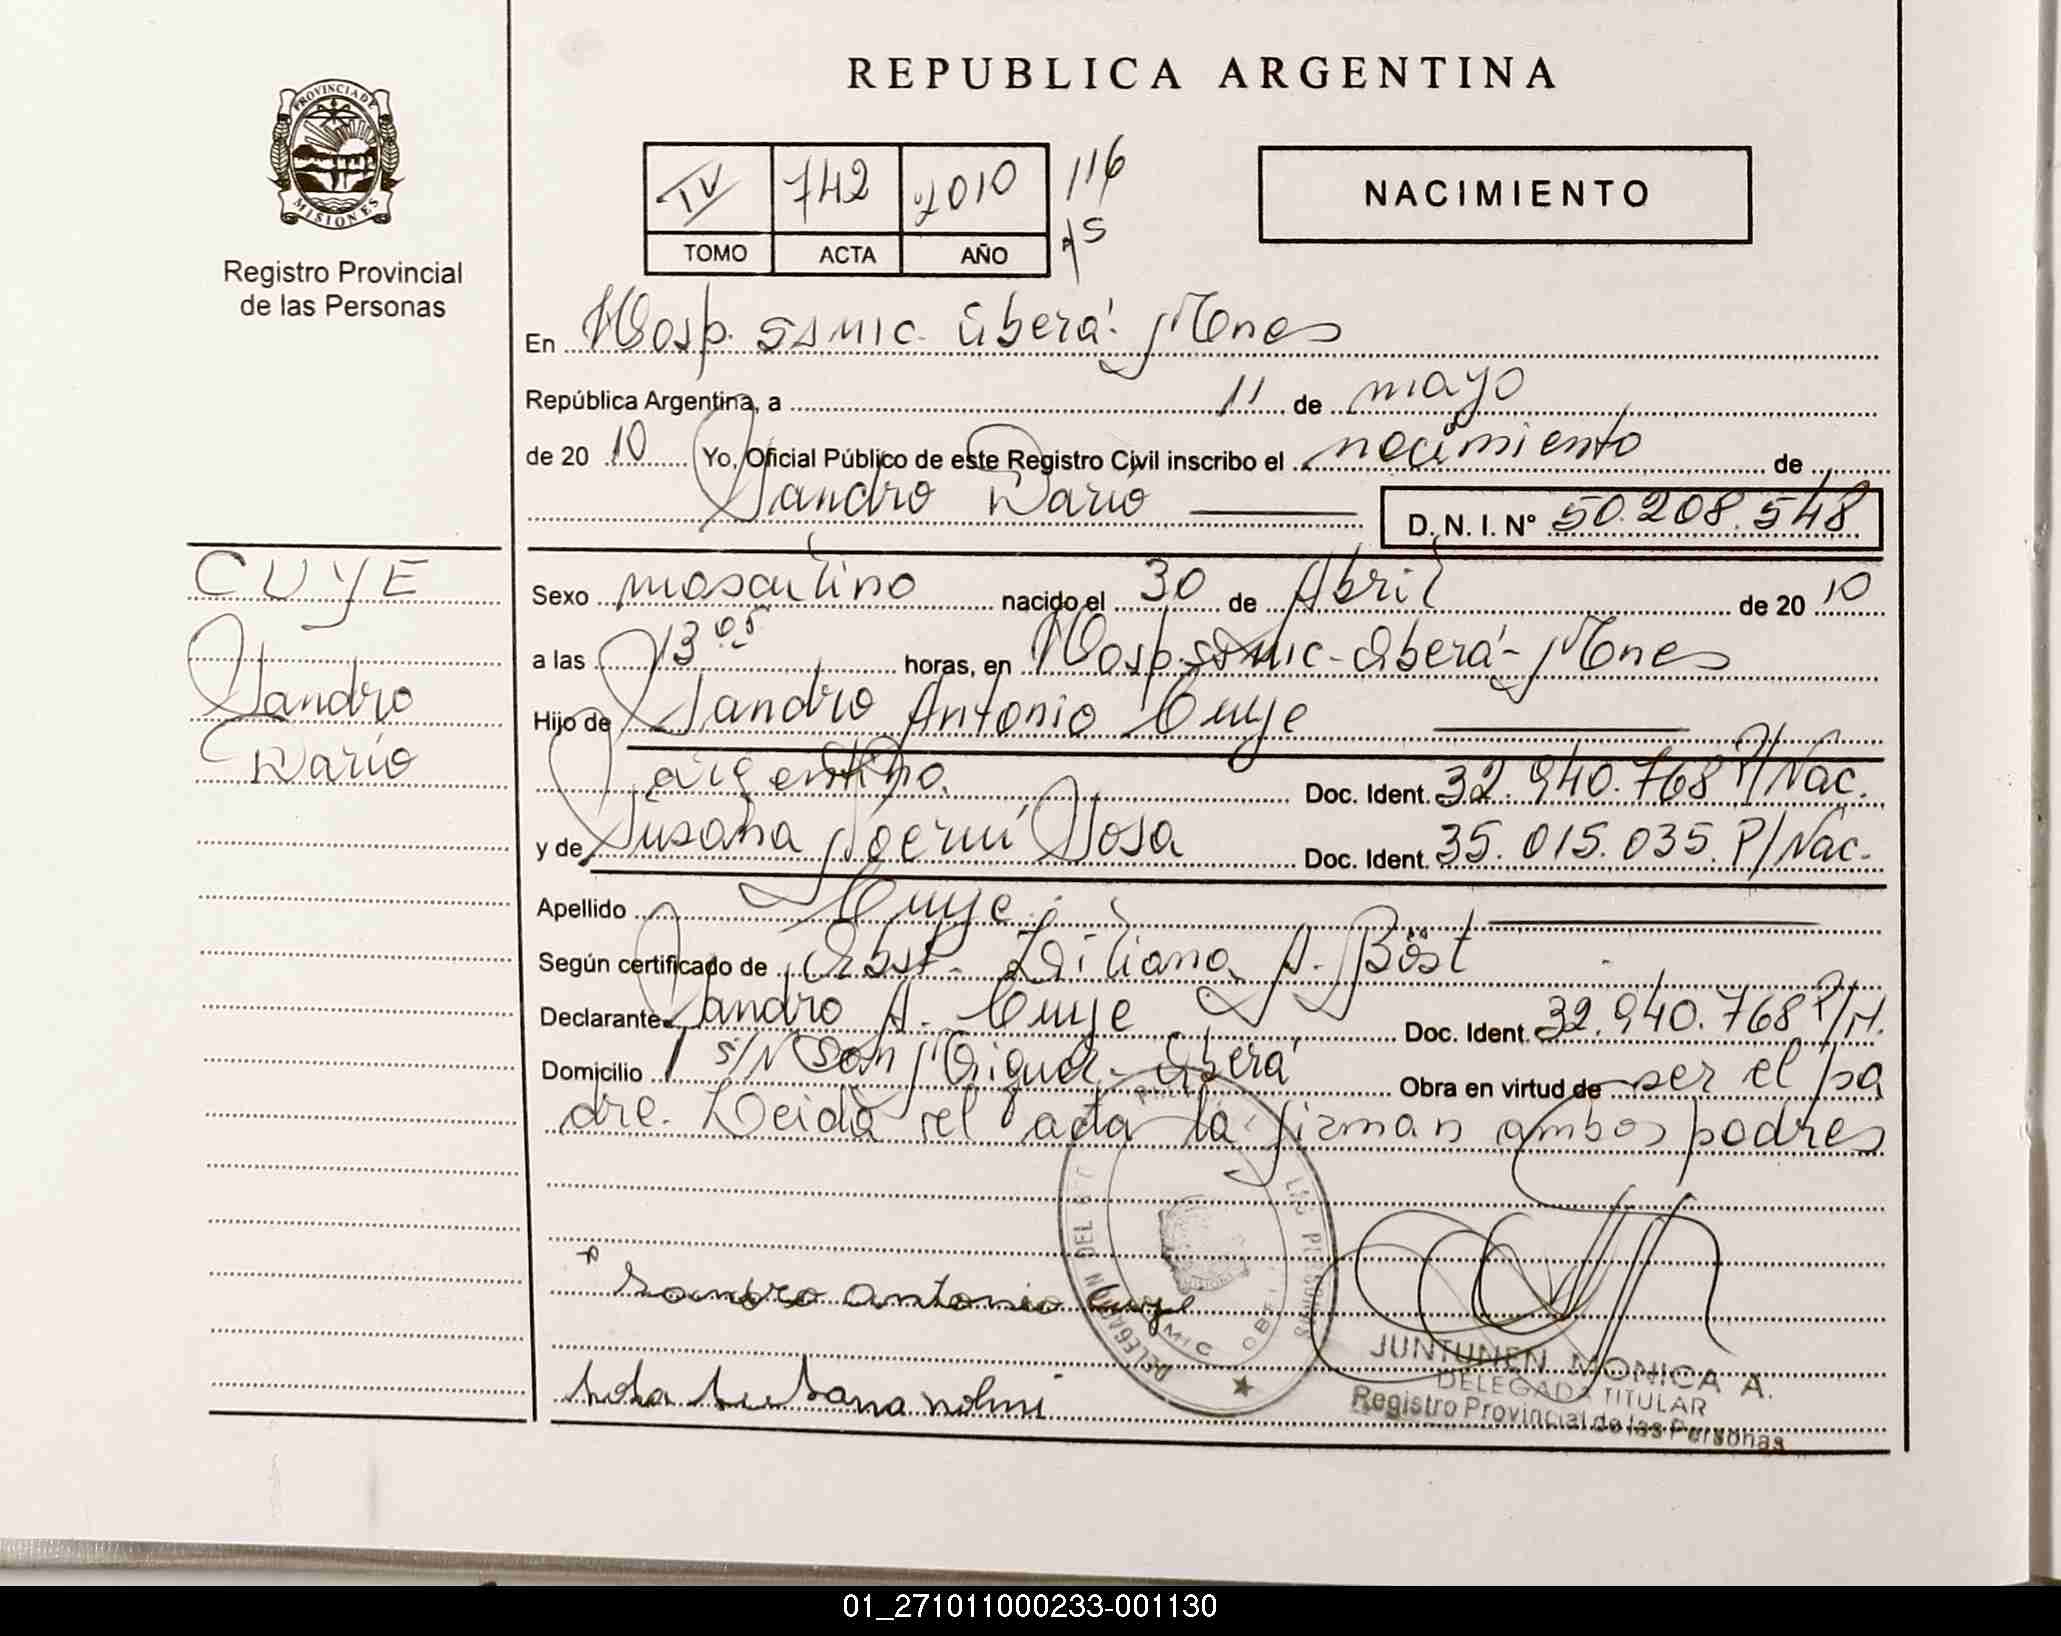 PROVINCIA DE
MISIONES
Registro Provincial
de las Personas
REPUBLICA ARGENTINA
IV 742 2010 116
TOMO ACTA AÑO
NACIMIENTO
En Hosp. SAMIC. Oberá. Mnes
República Argentina, a 11 de mayo
de 20 10 Yo, Oficial Público de este Registro Civil inscribo el nacimiento de
Sandro Dario
D. N. I. Nº 50.208.548
CUYE
Sandro
Darío
Sexo masculino nacido el 30 de Abril de 20 10
a las 13 05 horas, en Hosp. SAMIC - Oberá - Mnes
Hijo de Sandro Antonio Cuye
argentino. Doc. Ident. 32.940.768 P/Nac.
y de Susana Noemí Sosa Doc. Ident. 35.015.035. P/Nac.
Apellido Cuye.
Según certificado de Obst. Liliana A. Bost
Declarante Sandro A. Cuye Doc. Ident. 32.940.768 P/N.
Domicilio s/N San Miguel - Oberá Obra en virtud de ser el pa
dre. Leida el acta la firman ambos padres
Sandro antonio Cuye
Sosa Susana Nohmi
DELEGACION DEL LAS PERSONAS
JUNTUNEN MONICA A.
DELEGADA TITULAR
Registro Provincial de las Personas
01_271011000233-001130